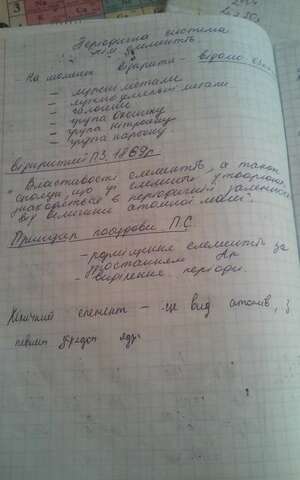 Періодична система
хім. елементів
На момент відкриття - відомо
- лужні метали
- лужноземельні метали
- галогени
- група оксигену
- група нітрогену
- група карбону
відкриття ПЗ, 1869р
"Властивості елементів, а також
сполук, що ці елементи утворюють,
знаходяться в періодичній залежності
від величини атомної маси".
Принципи побудови П.С.
- розміщення елементів за
зростанням Ar
- виділення періоди.
Хімічний елемент - це вид атомів, з
певним зарядом ядра